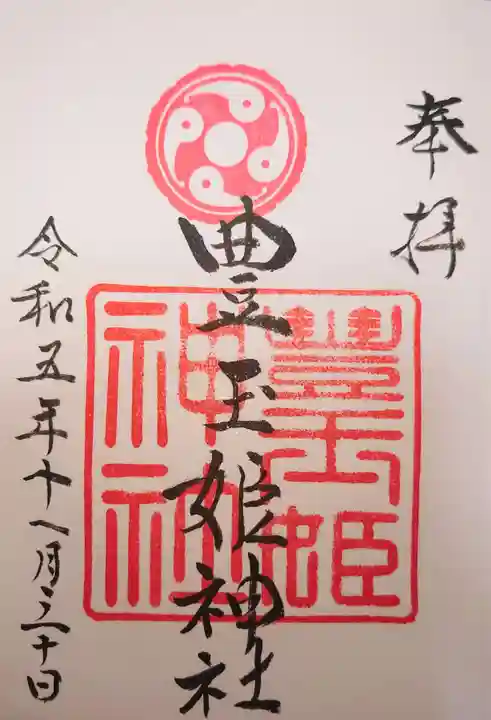 奉拝
豊玉姫神社
豊玉姫
神社
令和五年十一月三十日